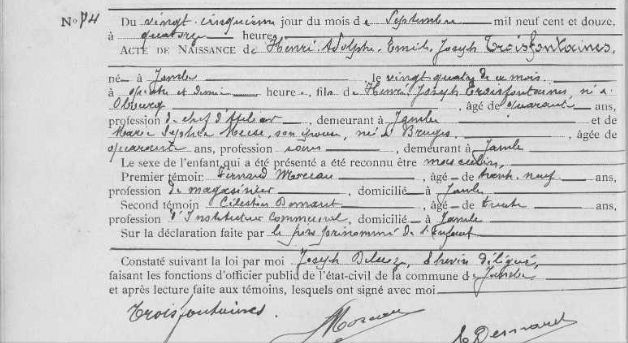 N° 74 Du vingt cinquième jour du mois de Septembre mil neuf cent et douze,
à quatorze heures
ACTE DE NAISSANCE de Henri Adolphe Emile Joseph Troisfontaines,
né à Jambes, le vingt quatre de ce mois
à quatre et demie heures, fils de Henri Joseph Troisfontaines, né à
Obourg, âgé de quarante ans,
profession de chef d'atelier, demeurant à Jambes et de
Marie Sophie Meuse, son épouse, née à Bruges, âgée de
quarante ans, profession sans, demeurant à Jambes
Le sexe de l'enfant qui a été présenté a été reconnu être masculin,
Premier témoin Fernand Moreau, âgé de trente neuf ans,
profession de magasinier, domicilié à Jambes
Second témoin Célestin, âgé de trente ans,
profession d'Instituteur Communal, domicilié à Jambes
Sur la déclaration faite par le père prénommé de l'Enfant
Constaté suivant la loi par moi Joseph, Echevin délégué,
faisant les fonctions d'officier public de l'état-civil de la commune de Jambes
et après lecture faite aux témoins, lesquels ont signé avec moi
Troisfontaines. Moreau